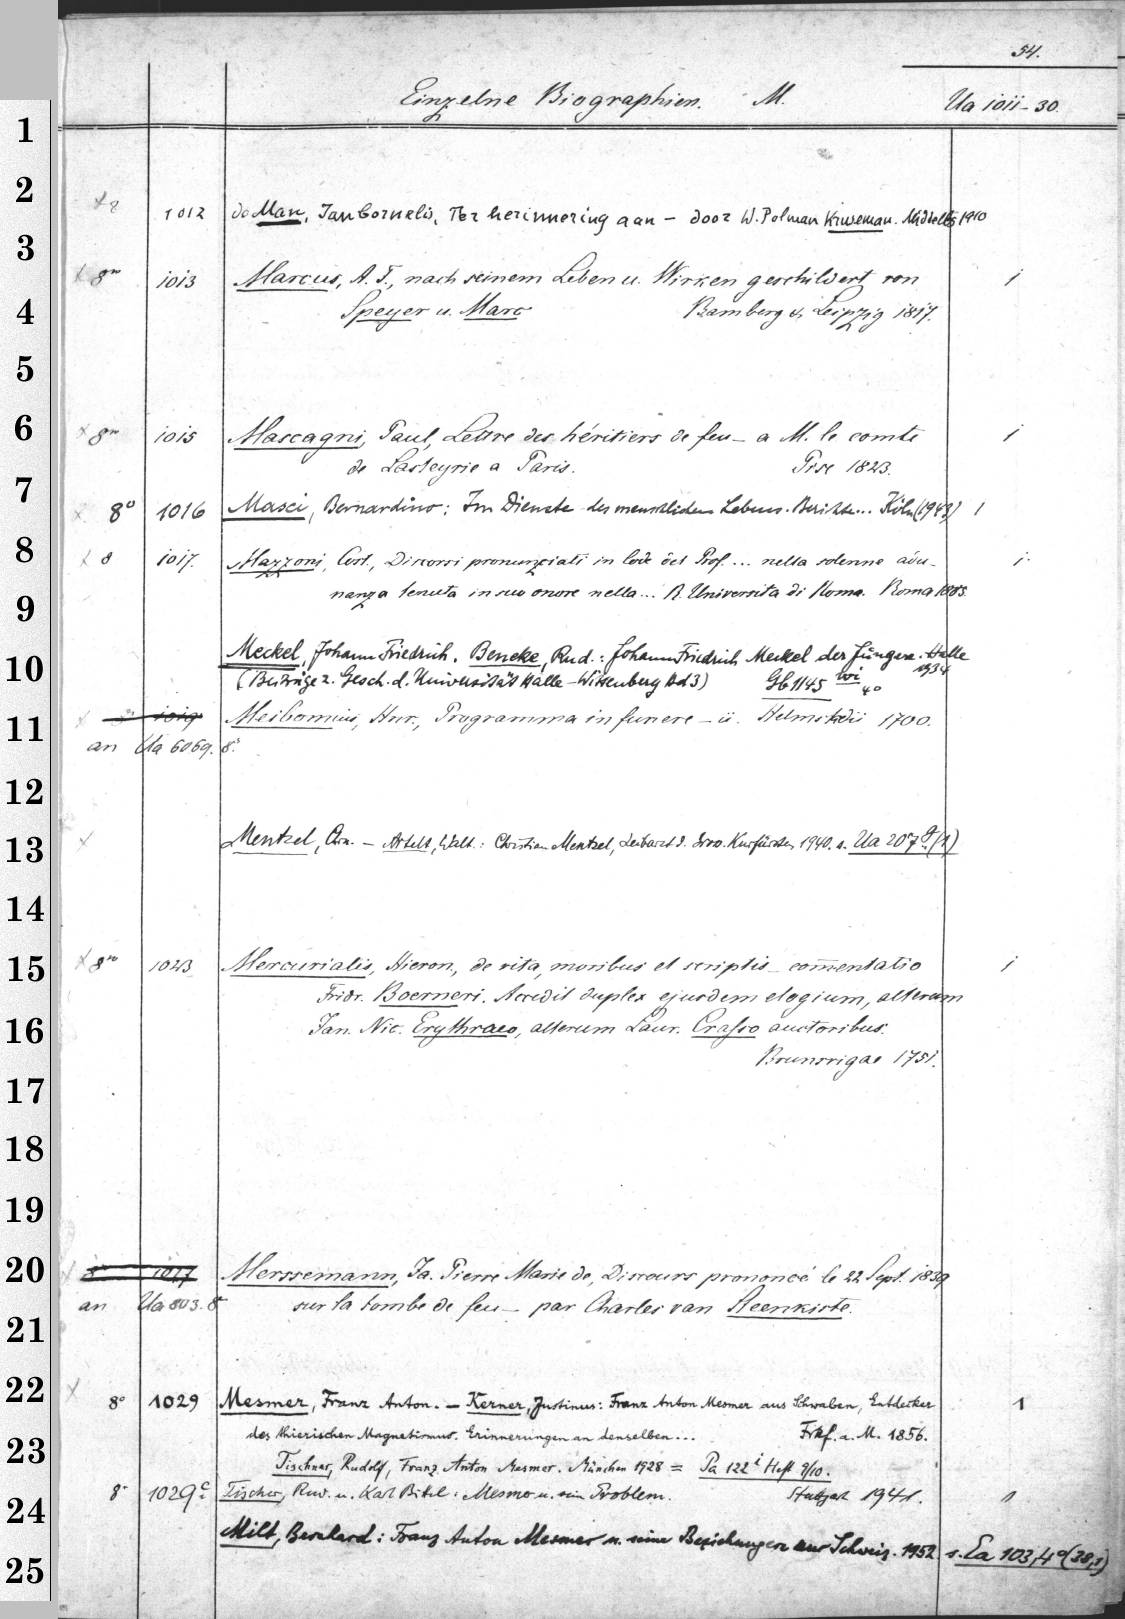 54.
Einzelne Biographien. M. Ua 1011-30.
1
2
x 8 1012 de Man, Jan Cornelis, Ter herinnering aan — door W. Polman Kruseman. Middelbg 1910
3
x 8vo 1013 Marcus, A. F., nach seinem Leben u. Wirken geschildert von 1
4 Speyer u. Marc Bamberg u. Leipzig 1817.
5
6 x 8vo 1015 Mascagni, Paul, Lettre des héritiers de feu — a M. le comte 1
de Lasteyrie a Paris. Pise 1823.
7
8° 1016 Masci, Bernardino: Im Dienste des menschlichen Lebens. Berichte... Köln (1943) 1
8 x 8 1017. Mazzoni, Cost., Discorsi pronunziati in lode del Prof. ... nella solenne adu- 1.
9 nanza tenuta in suo onore nella... R. Universita di Roma. Roma 1885.
10 Meckel, Johann Friedrich. Beneke, Rud.: Johann Friedrich Meckel der Jüngere. Halle 1934
(Beiträge z. Gesch. d. Universität Halle-Wittenberg Bd 3) Gb 1145 4°
11 x 1019 Meibomius, Hnr., Programma in funere — ii. Helmstadii 1700.
an Ua 6069. 8°.
12
13 x Mentzel, Chrn. — Artelt, Walt.: Christian Mentzel, Leibarzt d. Gross. Kurfürsten 1940. s. Ua 207 g (1)
14
15 x 8vo 1023 Mercurialis, Hieron., de vita, moribus et scriptis — com̄entatio 1
Fridr. Boerneri. Accedit duplex ejusdem elogium, alterum
16 Jan. Nic. Erythraeo, alterum Laur. Crasso auctoribus.
Brunsvigae 1751.
17
18
19
20 x 8 1027 Merssemann, Ja. Pierre Marie de, Discours prononcé le 22 Sept. 1839
an Ua 803. 8° sur la tombe de feu — par Charles van Steenkiste.
21
22 x 8° 1029 Mesmer, Franz Anton. — Kerner, Justinus: Franz Anton Mesmer aus Schwaben, Entdecker 1
23 des thierischen Magnetismus. Erinnerungen an denselben ... Frkf. a. M. 1856.
Tischner, Rudolf, Franz Anton Mesmer. München 1928 = Pa 122 i Heft 9/10.
24 8° 1029c Tischner, Rud. u. Karl Bittel: Mesmer u. sein Problem. Stuttgart 1941. 1
25 Milt, Bernhard: Franz Anton Mesmer u. seine Beziehungen zur Schweiz. 1952. s. Ea 103, 4° (38,1)